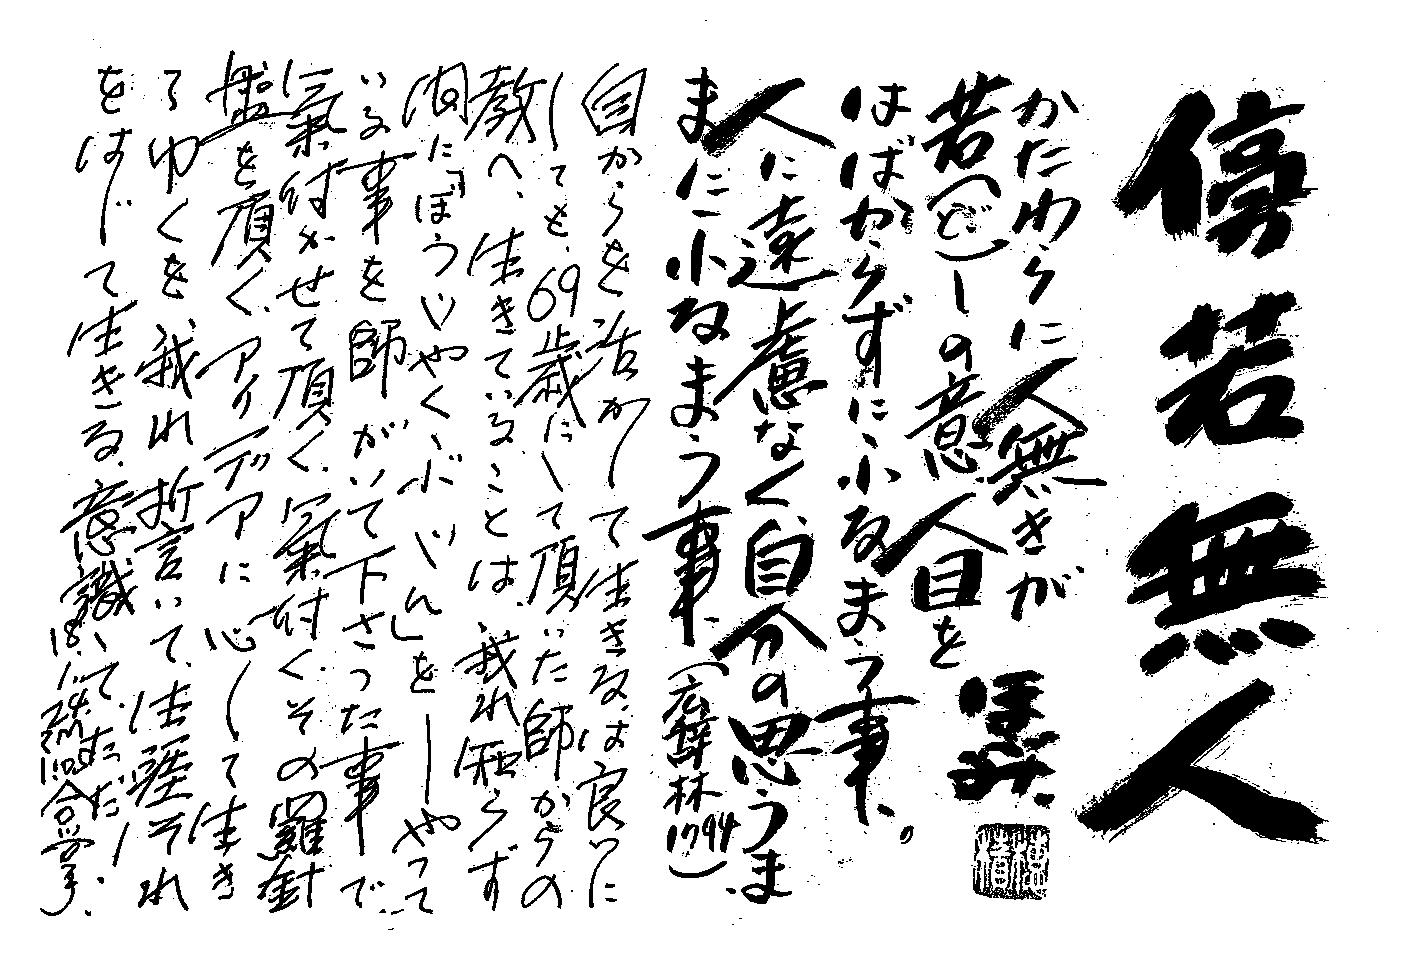 傍若無人
かたわらに人無きが
若(ごと)しの意、人目を
はばからずに、ふるまう事、
人に遠慮なく、自分の思うま
まに、ふるまう事、(広辞林1794)、
自からを活かして生きる、は良いに
しても、69歳にして頂いた師からの
教へ、生きていることは、我れ知らず
内に「ぼうじやく、ぶじん」をしやって
いる事を師がいて下さった事で
氣付かせて頂く、氣付く、その羅針
盤を頂く、アイデアに心して生き
てゆくを、我れ折言いて、生涯それ
をはじて生きる、意識して、ただ
合掌、